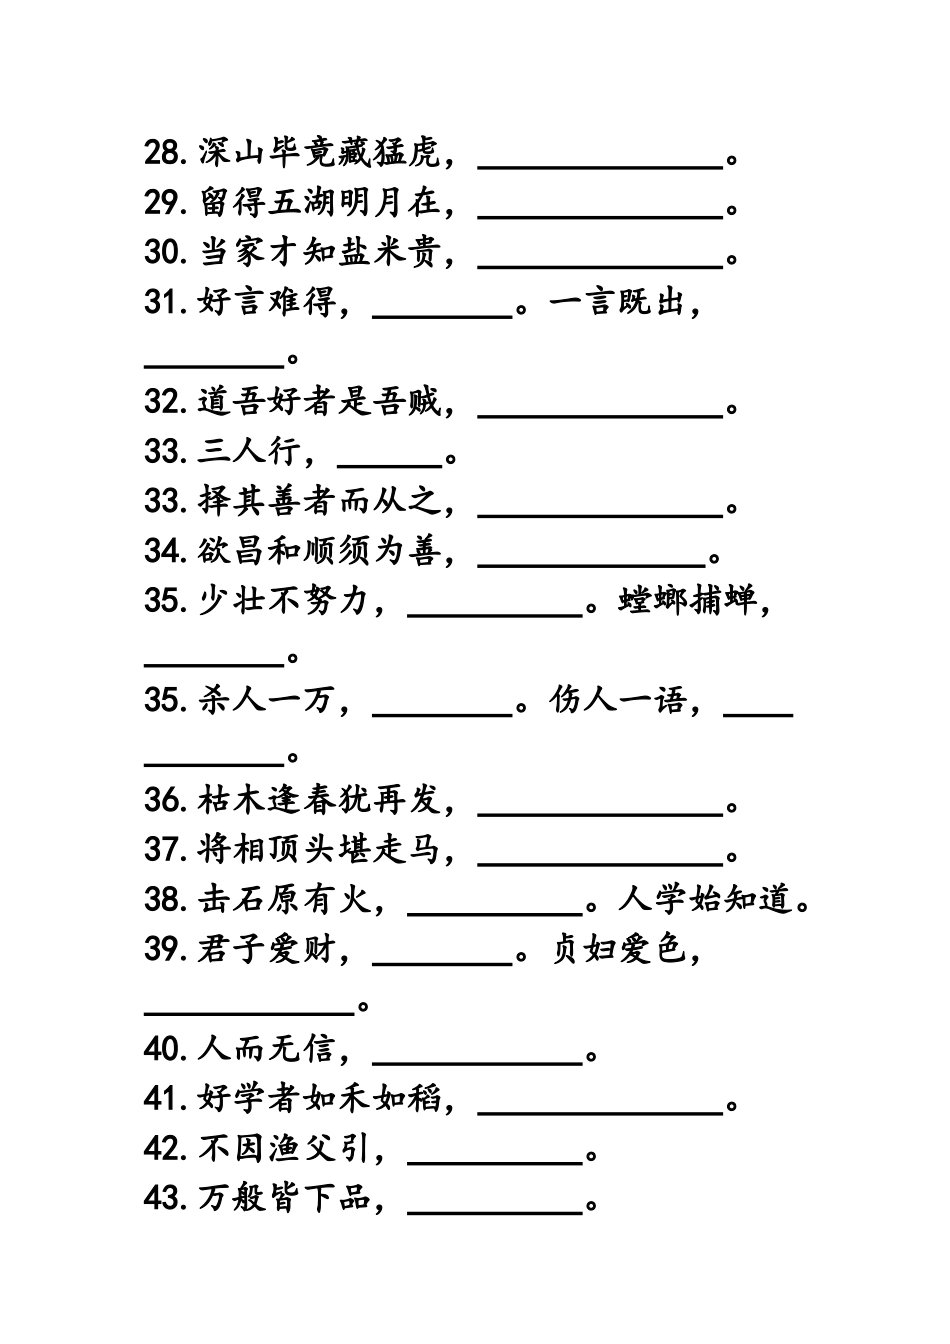 28.深山毕竟藏猛虎，______________。
29.留得五湖明月在，______________。
30.当家才知盐米贵，______________。
31.好言难得，________。一言既出，
________。
32.道吾好者是吾贼，______________。
33.三人行，______。
33.择其善者而从之，______________。
34.欲昌和顺须为善，_____________。
35.少壮不努力，__________。螳螂捕蝉，
________。
35.杀人一万，________。伤人一语，____
________。
36.枯木逢春犹再发，______________。
37.将相顶头堪走马，______________。
38.击石原有火，__________。人学始知道。
39.君子爱财，________。贞妇爱色，
____________。
40.人而无信，____________。
41.好学者如禾如稻，______________。
42.不因渔父引，__________。
43.万般皆下品，__________。